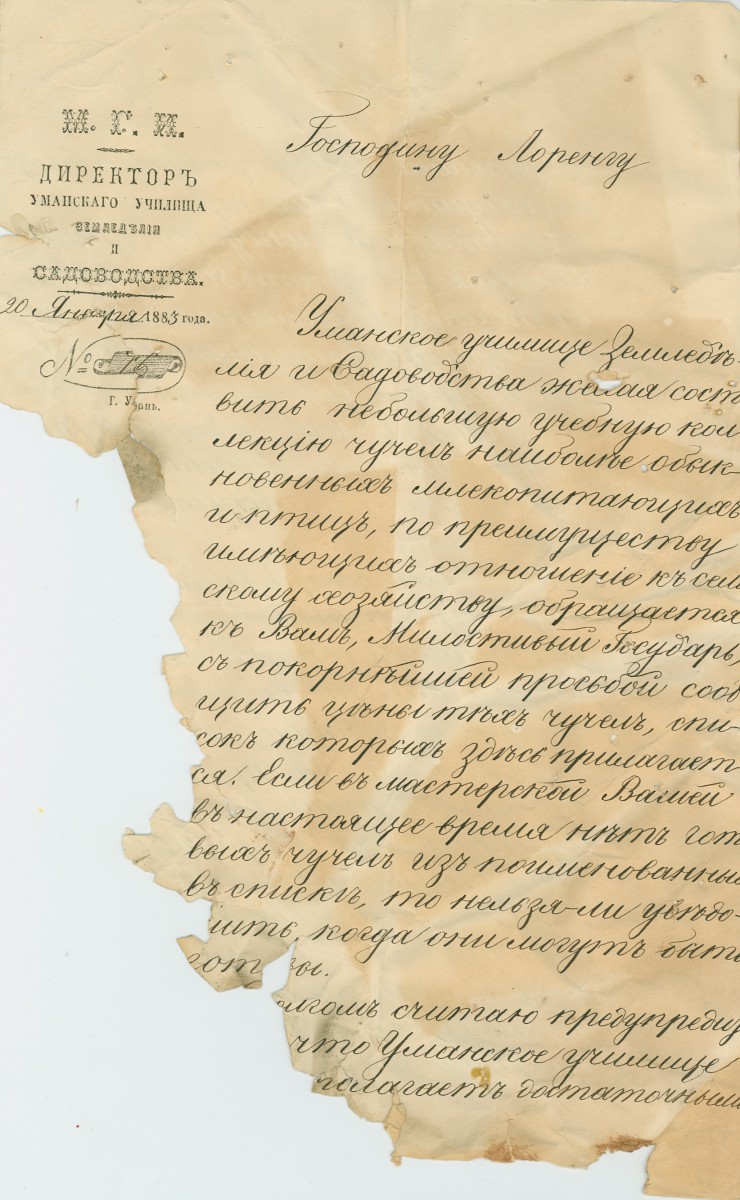 М. Г. И.
ДИРЕКТОРЪ
УМАНСКАГО УЧИЛИЩА
ЗЕМЛЕДѢЛІЯ
И
САДОВОДСТВА.
20 Января 1883 года.
№
Г. Умань.
Господину Лоренгу
Уманское училище Земледѣ-
лія и Садоводства желая соста
вить небольшую учебную кол
лекцію чучелъ наиболѣе обык-
новенныхъ млекопитающихъ
и птицъ, по преимуществу
имѣющихъ отношеніе къ сель
скому хозяйству, обращается
къ Вамъ, Милостивый Государь,
съ покорнѣйшей просьбой сооб
щить цѣны тѣхъ чучелъ, спи-
сокъ которыхъ здѣсь прилагает
ся. Если въ мастерской Вашей
въ настоящее время нѣтъ гот
выхъ чучелъ изъ поименованныхъ
въ спискѣ, то нельзя-ли увѣдо-
мить, когда они могутъ быть
готовы.
олгомъ считаю предупреди
что Уманское училище
полагаетъ достаточными